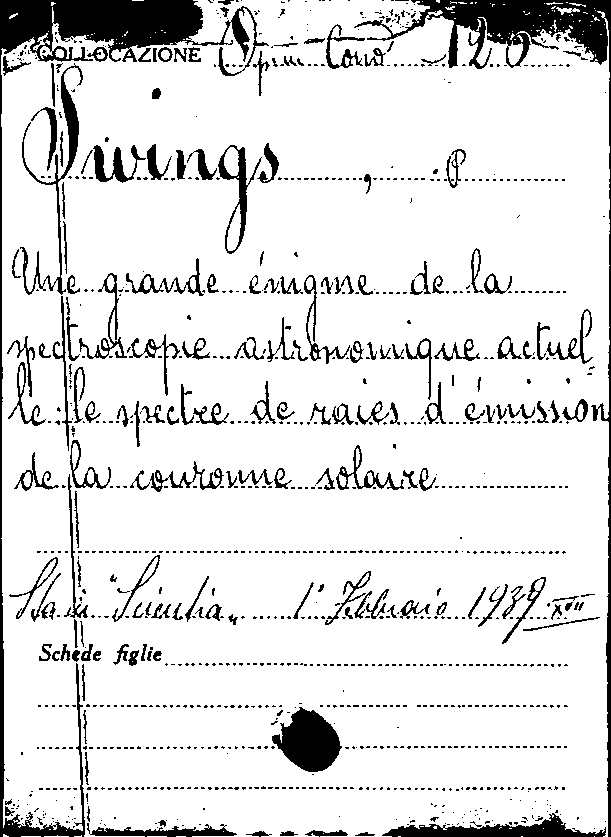 COLLOCAZIONE Opusc Cons 120
Swings, P
Une grande énigme de la
spectroscopie astronomique actuel-
le: le spectre de raies d'émission
de la couronne solaire
Sta in "Scientia„ 1° Febbraio 1939 XVII
Schede figlie